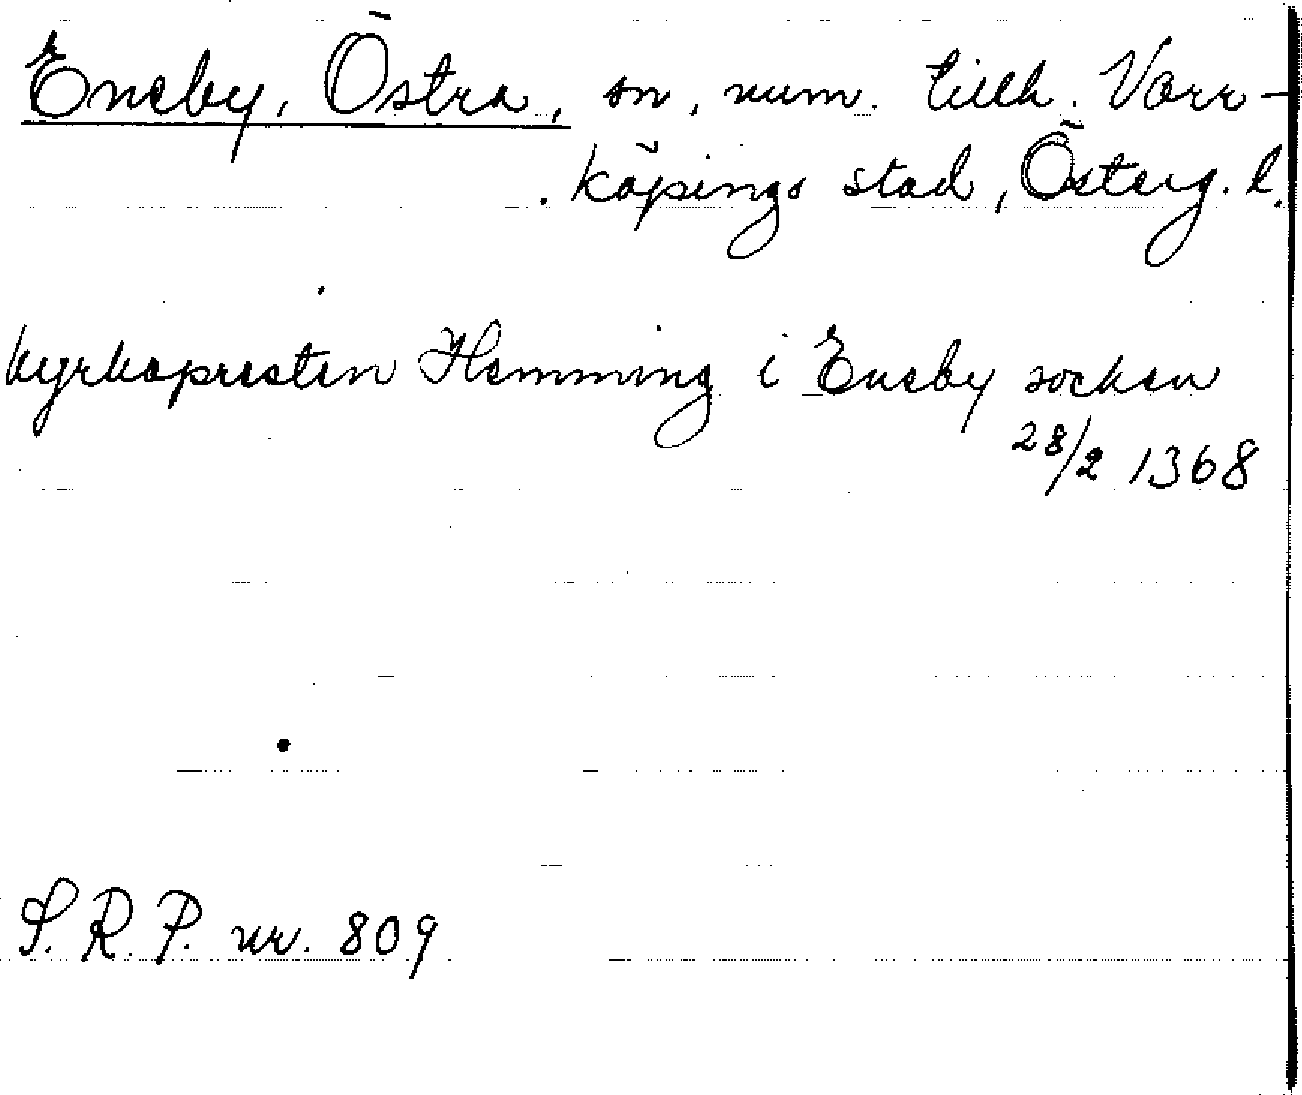 Eneby, Östra, sn, num. tillh. Norr-
köpings stad, Österg. l.
kyrkopresten Hemming i Eneby socken
28/2 1368
S. R. P. nr. 809